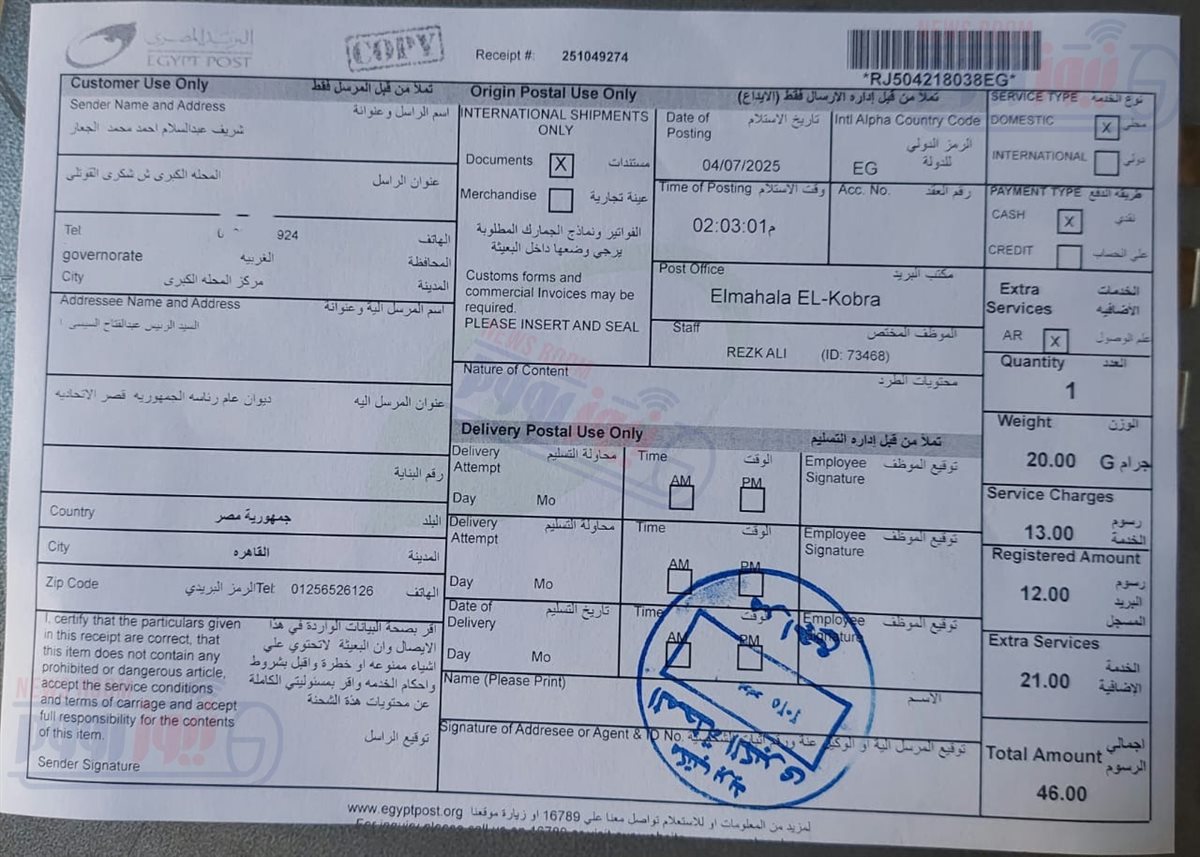 البريد المصري
EGYPT POST
COPY
Receipt #: 251049274
*RJ504218038EG*
Customer Use Only تملأ من قبل المرسل فقط
Sender Name and Address اسم الراسل وعنوانة
شريف عبدالسلام احمد محمد الجعار
المحله الكبرى ش شكرى القوتلى عنوان الراسل
Tel 924 الهاتف
governorate الغربيه المحافظة
City مركز المحله الكبرى المدينة
Addressee Name and Address اسم المرسل الية وعنوانة
السيد الرئيس عبدالفتاح السيسى
ديوان عام رئاسه الجمهوريه قصر الاتحاديه عنوان المرسل اليه
رقم البناية
Country جمهورية مصر البلد
City القاهره المدينة
Zip Code الرمز البريدي Tel: 01256526126 الهاتف
I, certify that the particulars given
in this receipt are correct, that
this item does not contain any
prohibited or dangerous article,
accept the service conditions
and terms of carriage and accept
full responsibility for the contents
of this item.
اقر بصحة البيانات الواردة في هذا
الايصال وان البعيثة لاتحتوي علي
اشياء ممنوعه او خطرة واقبل بشروط
واحكام الخدمه واقر بمسئوليتي الكاملة
عن محتويات هذة الشحنة
توقيع الراسل
Sender Signature
Origin Postal Use Only تملأ من قبل إداره الارسال فقط (الايداع)
INTERNATIONAL SHIPMENTS
ONLY
Documents X مستندات
Merchandise عينة تجارية
الفواتير ونماذج الجمارك المطلوبة
يرجي وضعها داخل البعيثة
Customs forms and
commercial Invoices may be
required.
PLEASE INSERT AND SEAL
Date of Posting تاريخ الاستلام
04/07/2025
Intl Alpha Country Code
الرمز الدولي للدولة
EG
Time of Posting وقت الاستلام
02:03:01م
Acc. No. رقم العقد
Post Office مكتب البريد
Elmahala EL-Kobra
Staff الموظف المختص
REZK ALI (ID: 73468)
Nature of Content محتويات الطرد
Delivery Postal Use Only تملأ من قبل إداره التسليم
Delivery Attempt محاولة التسليم Time الوقت Employee Signature توقيع الموظف
AM PM
Day Mo
Delivery Attempt محاولة التسليم Time الوقت Employee Signature توقيع الموظف
AM PM
Day Mo
Date of Delivery تاريخ التسليم Time الوقت Employee Signature توقيع الموظف
AM PM
Day Mo
Name (Please Print) الاسم
Signature of Addresee or Agent & ID No. توقيع المرسل الية او الوكيل عنة ورقم اثبات
SERVICE TYPE نوع الخدمة
DOMESTIC X محلي
INTERNATIONAL دولي
PAYMENT TYPE طريقه الدفع
CASH X نقدي
CREDIT علي الحساب
Extra Services الخدمات الأضافيه
AR X علم الوصول
Quantity العدد
1
Weight الوزن
20.00 G جرام
Service Charges
13.00 رسوم الخدمة
Registered Amount
12.00 رسوم البريد المسجل
Extra Services
21.00 الخدمة الإضافية
Total Amount اجمالي الرسوم
46.00
مكتب بريد
المحلة الكبرى
٢٠٢٥
www.egyptpost.org لمزيد من المعلومات او للاستعلام تواصل معنا علي 16789 او زيارة موقعنا
NEWS ROOM
نيوز رووم